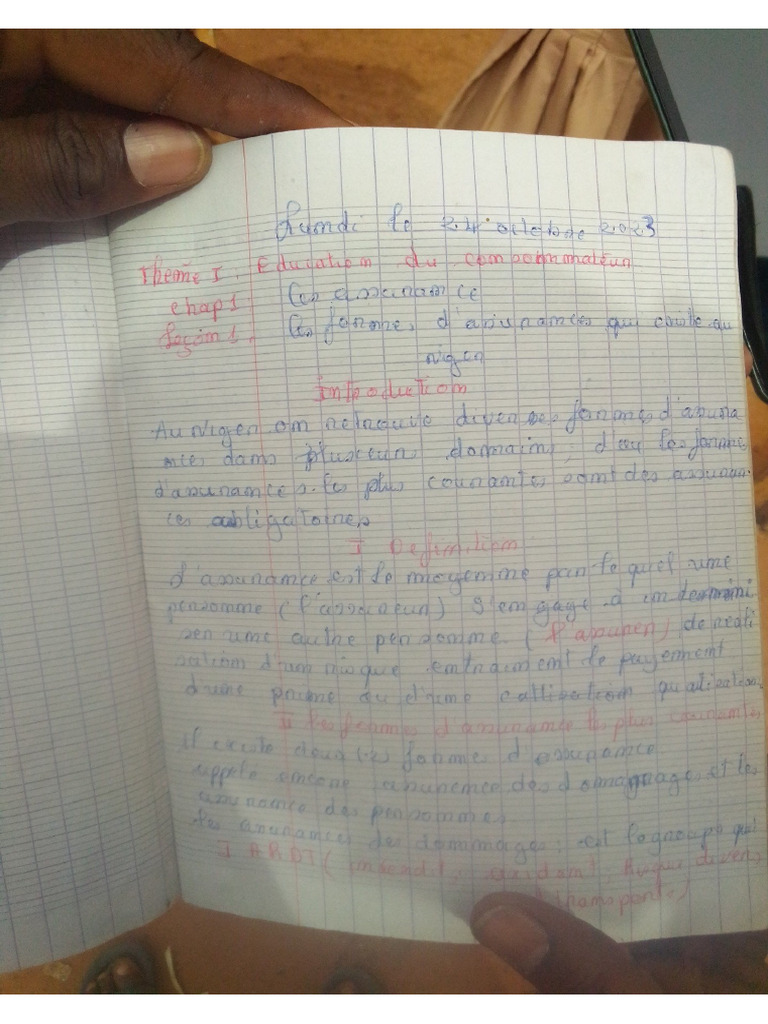 Lundi le 24 octobre 2023
Thème I. Education du consommateur
chap1 Les assurance
Leçon 1. Les formes d'assurances qui existe au
niger
Introduction
Au Niger on retrouve diverses formes d'assura
nces dans plusieurs domains, d'ou les forme
d'assurances les plus courantes sont des assuran-
ces obligatoires
I Definition
L'assurance est le moyenne par le quel une
personne (l'assureur) s'engage à indemni
ser une autre personne (l'assurer) de réali
sation d'un risque entrainent le payement
d'une prime ou d'une
I Les formes d'assurance les plus courantes
il existe deux (2) forme d'assurance
appelé encore assurance des domage et les
assurance des personnes.
les assurances des dommages: est le groupe que
I ARDT (incendit, accident, Risque divers,
transports)